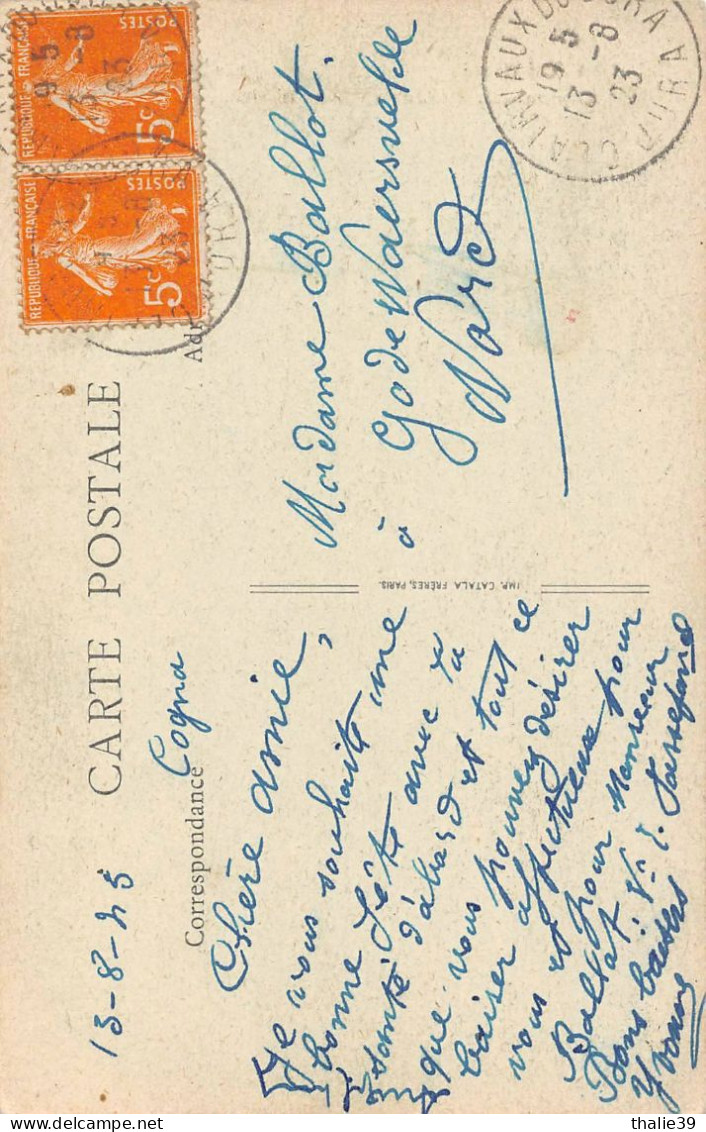 CARTE POSTALE
13-8-23
Cogna
Correspondance
Chère amie,
Je vous souhaite une
bonne fête avec la
santé d'abord et tout ce
que vous pouvez désirer
baiser affectueux pour
vous et pour Monsieur
Ballot
Bons baisers
Yvonne
IMP. CATALA FRÈRES, PARIS.
Madame Ballot.
à Godewaersvelde
Nord
REPUBLIQUE FRANÇAISE
POSTES
5c
REPUBLIQUE FRANÇAISE
POSTES
5c
CLAIRVAUX DU JURA
JURA
19 5
13 -8
23
delcampe.net
thalie39